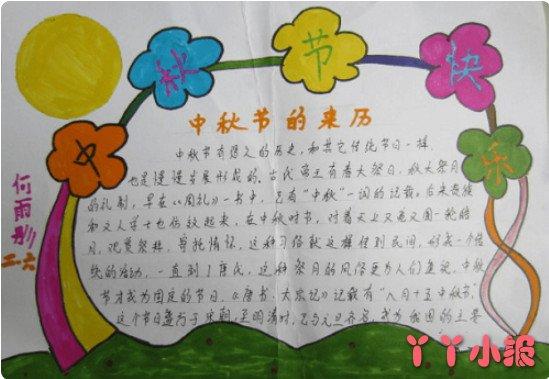 中秋节快乐
中秋节的来历
何雨彤
二.六
中秋节有悠久的历史，和其它传统节日一样，
也是慢慢发展形成的。古代帝王有春天祭日，秋天祭月
的礼制，早在《周礼》一书中，已有“中秋”一词的记载。后来贵族
和文人学士也仿效起来，在中秋时节，对着天上又亮又圆一轮皓
月，观赏祭拜，寄托情怀，这种习俗就这样传到民间，形成一个传
统的活动，一直到了唐代，这种祭月的风俗更为人们重视，中秋
节才成为固定的节日，《唐书·太宗记》记载有“八月十五中秋节”，
这个节日盛行于宋朝，至明清时，已与元旦齐名，成为我国的主要
丫丫小报